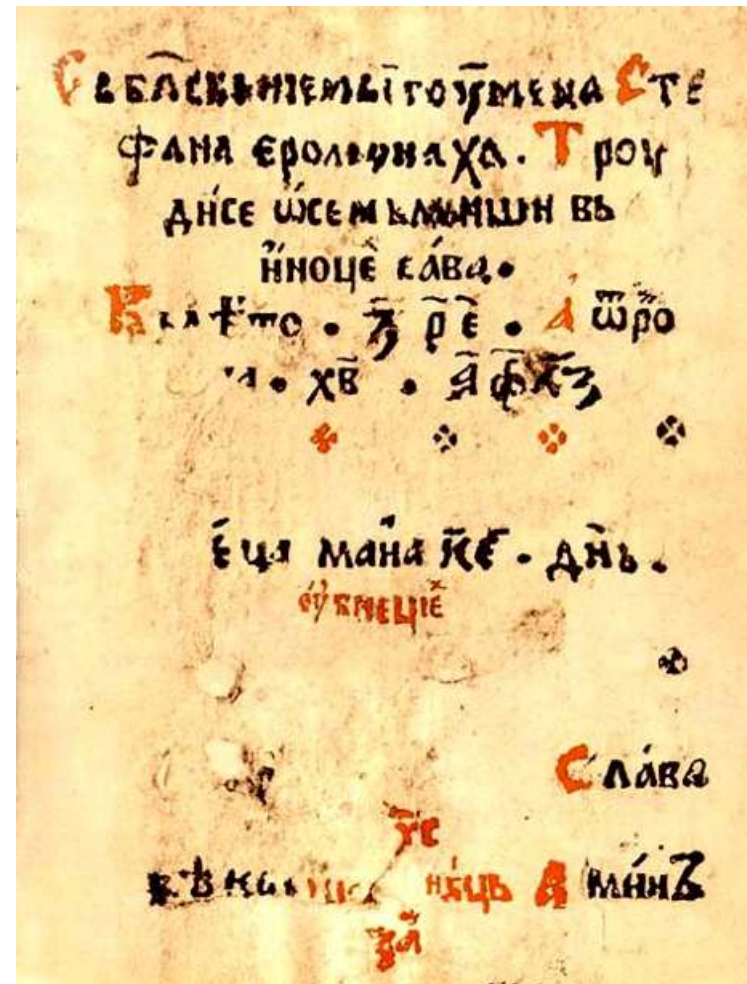 С вбл҃свениемьігоу҆мена Сте
фана еромонаха. Троу
ди́се ѡ҆семь мьнши вь
и҆ноце҆ са́ва.
В лѣто . ҂з҃ р҃ е҃ . А ѿро
. хв҃ . ҂а҃ф҃ч҃з
е́ца маиа к҃е . дн҃ь .
оу҆ бнецїе
Сла́ва
х҃с
А ми́нь